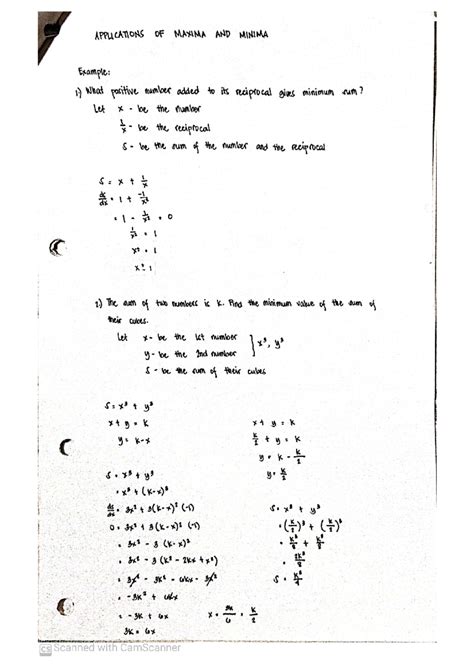 APPLICATIONS OF MAXIMA AND MINIMA
Example:
1.) What positive number added to its reciprocal gives minimum sum?
Let x - be the number
1/x - be the reciprocal
S - be the sum of the number and the reciprocal
S = x + 1/x
ds/dx = 1 + -1/x²
= 1 - 1/x² = 0
1/x² = 1
x² = 1
x = 1
2.) The sum of two numbers is k. Find the minimum value of the sum of
their cubes.
Let x - be the 1st number
y - be the 2nd number } x³, y³
S - be the sum of their cubes
S = x³ + y³
x + y = k
y = k-x
S = x³ + y³
= x³ + (k-x)³
ds/dx = 3x² + 3(k-x)² (-1)
0 = 3x² + 3(k-x)² (-1)
= 3x² - 3 (k-x)²
= 3x² - 3 (k² - 2kx + x²)
= 3x² - 3k² - 6kx - 3x²
= -3k² + 6kx
= -3k + 6x
3k = 6x
x = 3k/6 = k/2
x + y = k
k/2 + y = k
y = k - k/2
y = k/2
S = x³ + y³
= (k/2)³ + (k/2)³
= k³/8 + k³/8
= 2k³/8
S = k³/4
CS Scanned with CamScanner